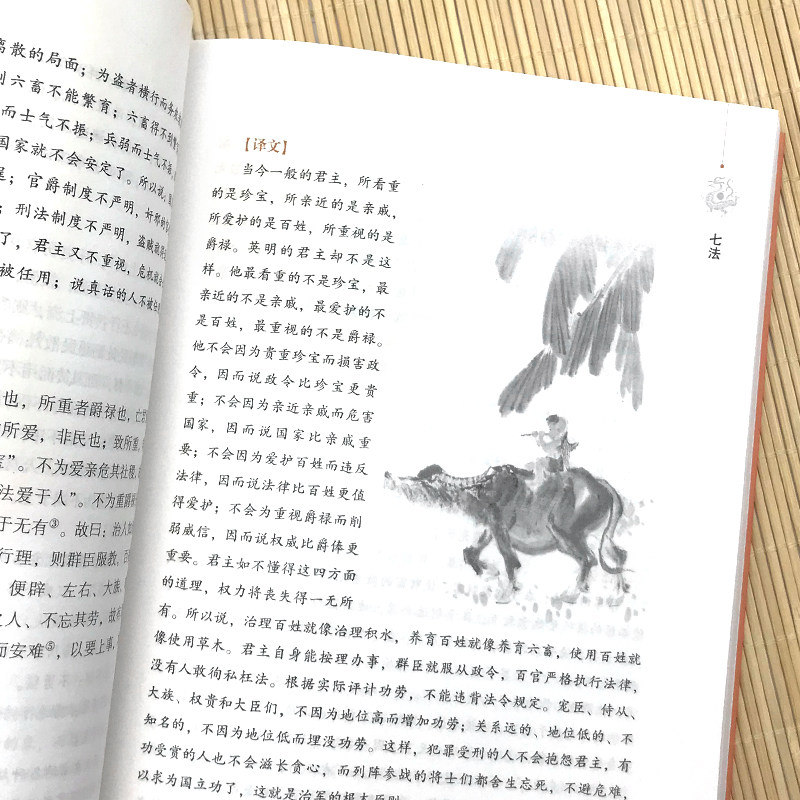 离散的局面；为盗者横行而务
六畜不能繁育；六畜得不到
而士气不振；兵弱而士气不振，
国家就不会安定了。所以说，
；官爵制度不严明，奸邪的
；刑法制度不严明，盗贼就
了，君主又不重视，危机就
被任用；说真话的人不被任
也，所重者爵禄也，亡
所爱，非民也；致所重，
宝”。不为爱亲危其社稷，
法爱于人”。不为重爵
于无有③。故曰：治人如
行理，则群臣服教，百
便辟、左右、大族、
之人、不忘其劳，故
而安难⑤，以要上事，
【译文】
当今一般的君主，所看重
的是珍宝，所亲近的是亲戚，
所爱护的是百姓，所重视的是
爵禄。英明的君主却不是这
样。他最看重的不是珍宝，最
亲近的不是亲戚，最爱护的不
是百姓，最重视的不是爵禄。
他不会因为贵重珍宝而损害政
令，因而说政令比珍宝更贵
重；不会因为亲近亲戚而危害
国家，因而说国家比亲戚重
要；不会因为爱护百姓而违反
法律，因而说法律比百姓更值
得爱护；不会为重视爵禄而削
弱威信，因而说权威比爵俸更
重要。君主如不懂得这四方面
的道理，权力将丧失得一无所
有。所以说，治理百姓就像治理积水，养育百姓就像养育六畜，使用百姓就
像使用草木。君主自身能按理办事，群臣就服从政令，百官严格执行法律，
没有人敢徇私枉法。根据实际评计功劳，不能违背法令规定。宠臣、侍从、
大族、权贵和大臣们，不因为地位高而增加功劳；关系远的、地位低的、不
知名的，不因为地位低而埋没功劳。这样，犯罪受刑的人不会抱怨君主，有
功受赏的人也不会滋长贪心，而列阵参战的将士们都舍生忘死，不避危难，
以求为国立功了，这就是治军的根大原则
七法